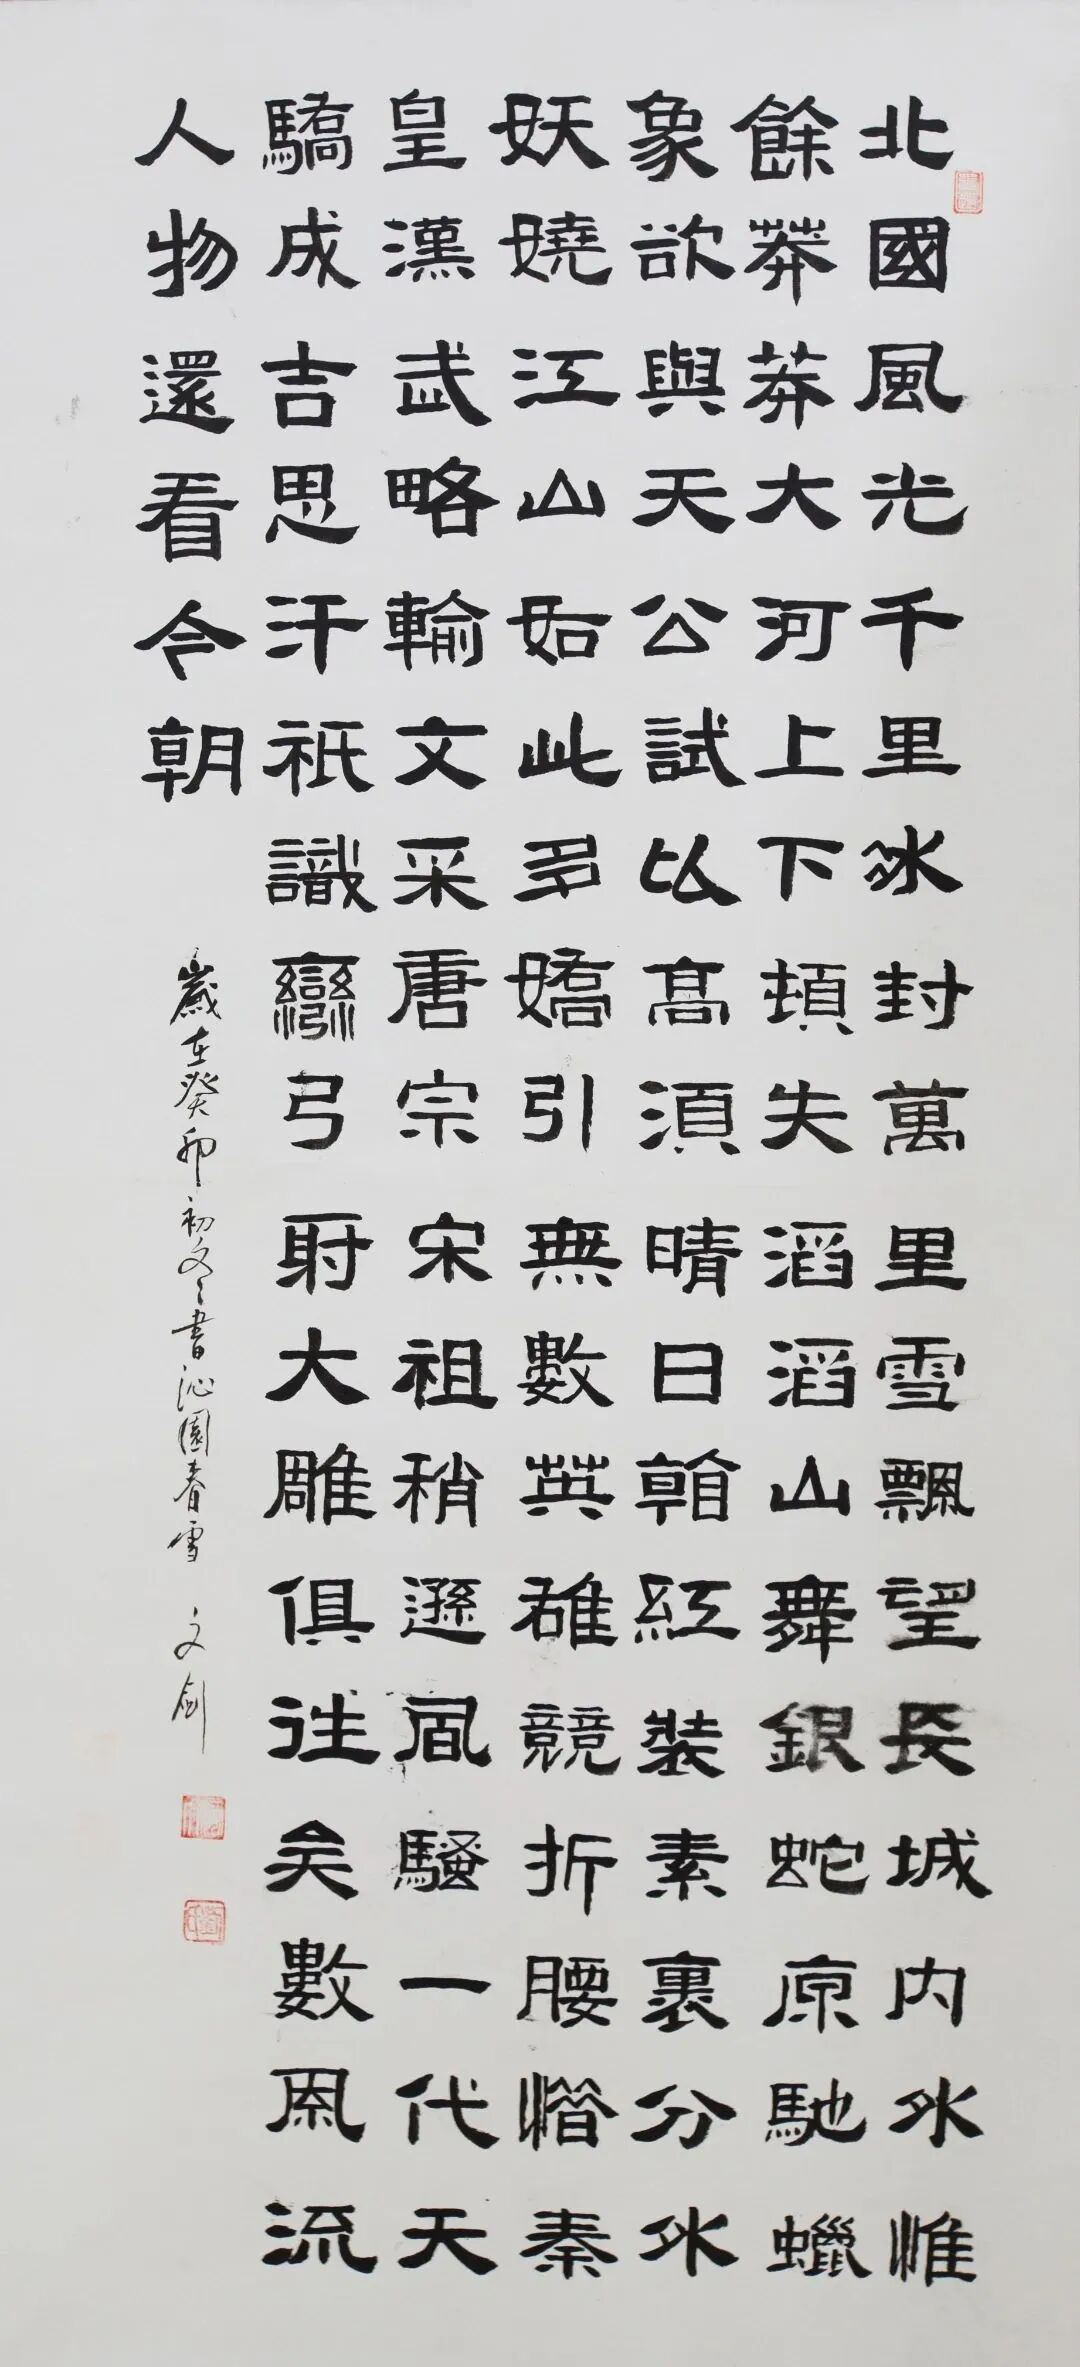 北國風光千里冰封萬里雪飄望長城內外惟
餘莽莽大河上下頓失滔滔山舞銀蛇原馳蠟
象欲與天公試以高須晴日看紅裝素裹分外
妖嬈江山如此多嬌引無數英雄競折腰惜秦
皇漢武略輸文采唐宗宋祖稍遜風騷一代天
驕成吉思汗祇識彎弓射大雕俱往矣數風流
人物還看今朝
歲在癸卯初冬書沁園春雪 文劍